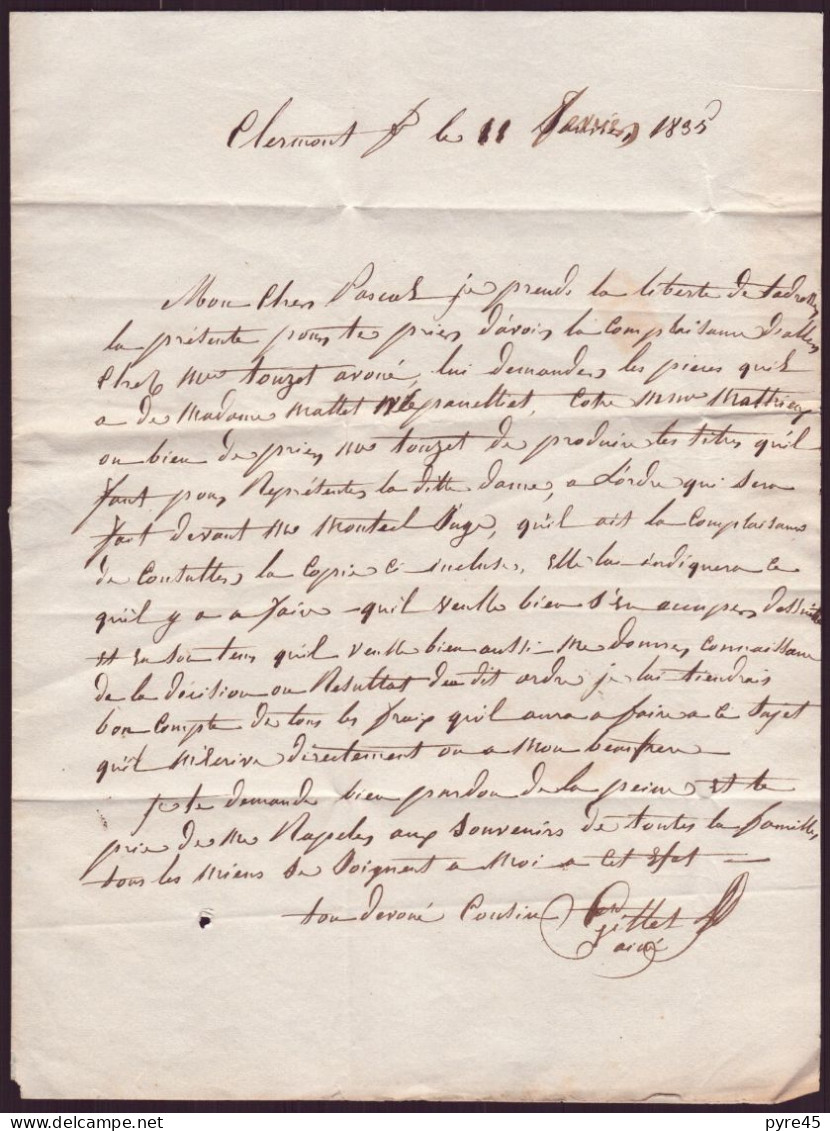 Clermont fd le 11 fevrier 1835
Mon Cher Pascal je prends la liberte de tadresser
la présente pour te prier d'avoir la Complaisance d'aller
Chez Me touzet avoué, lui demander les pieces qu'il
a de Madame Mallet Cotre Mme Mathieu
ou bien de prier Me touzet de produire les titres qu'il
faut pour Représenter la ditte dame, a L'ordre qui sera
fait devant Me Monteil Juge, qu'il ait la Complaisance
de Consulter la Copie Ci incluse, Elle lui indiquera ce
quil y a a faire qu'il veuille bien s'en occuper de suite
et En son tems qu'il veuille bien aussi me donner Connaissance
de la décision ou Resultat du dit ordre je lui tiendrais
bon Compte de tous les fraix qu'il aura a faire a ce Sujet
qu'il M'écrive directement ou a Mon beaufrere
Je te demande bien pardon de la peine et te
prie de me Rapeler aux Souvenirs de toutes la famille,
tous les Miens Se Joignent a Moi a Cet Efet
ton devoué Cousin Gillet
ainé
pyre45